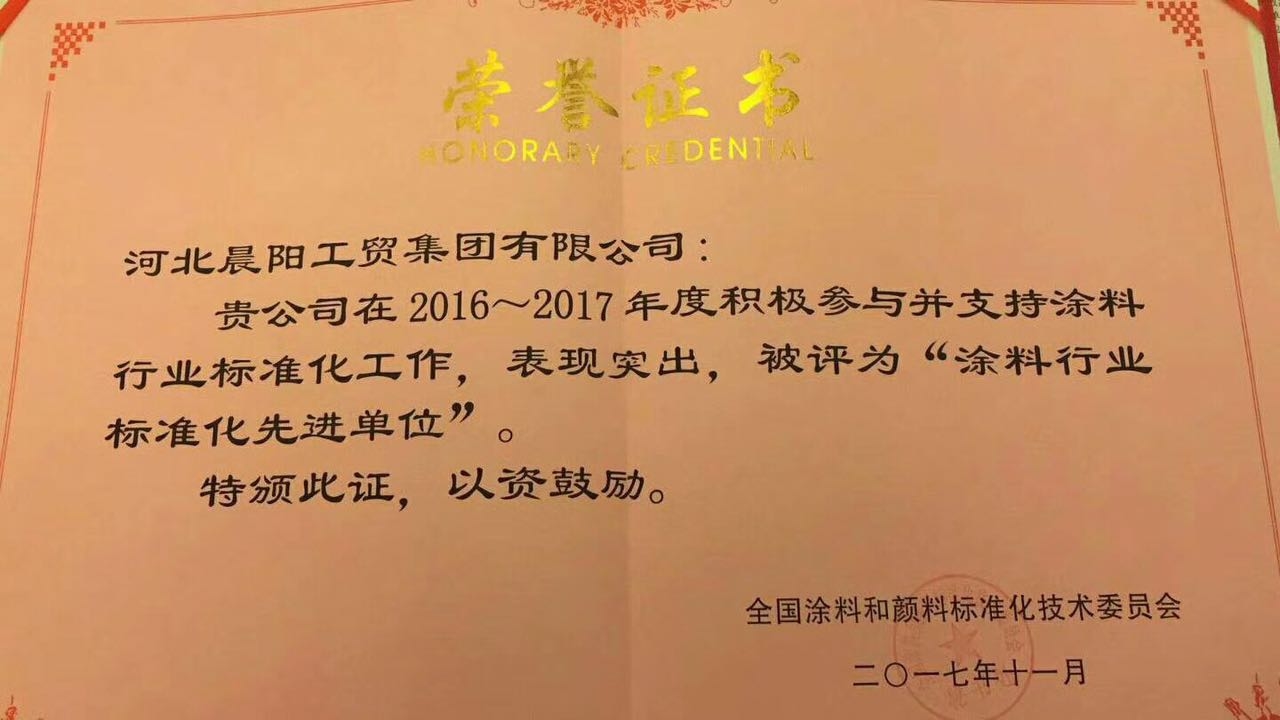 荣誉证书
HONORARY CREDENTIAL
河北晨阳工贸集团有限公司：
贵公司在2016～2017年度积极参与并支持涂料
行业标准化工作，表现突出，被评为“涂料行业
标准化先进单位”。
特颁此证，以资鼓励。
全国涂料和颜料标准化技术委员会
二〇一七年十一月